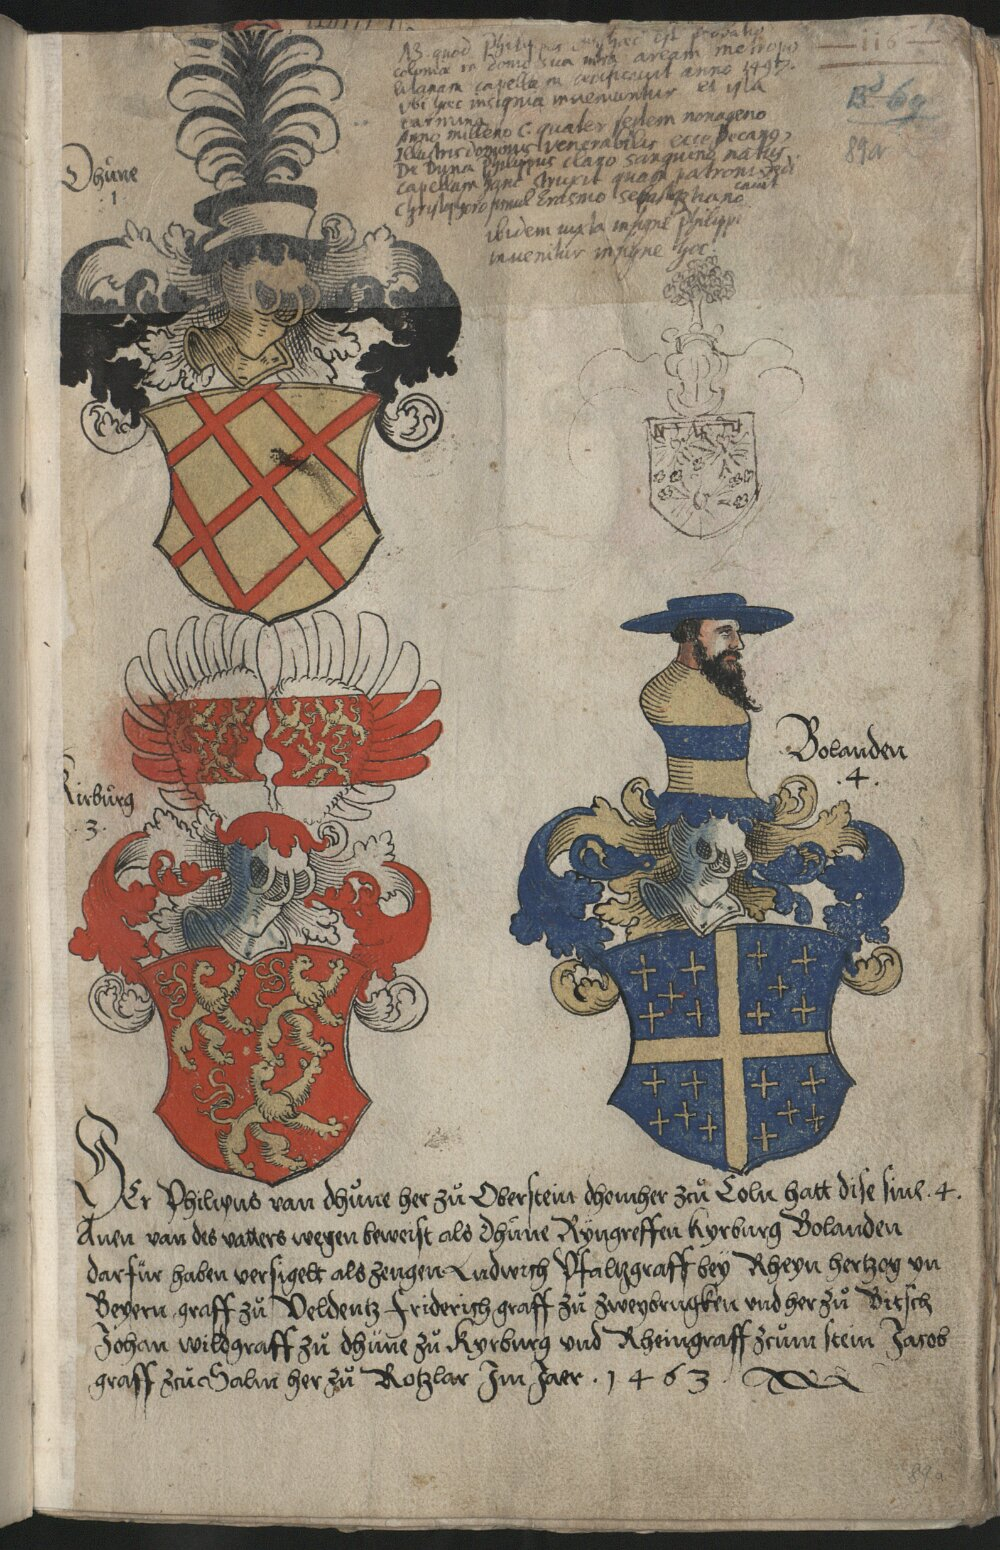 NB. quod Philippus hic est
coloniæ in domo sua intra aream metropo
litanam capellam aedificavit anno 1497.
ubi hec insignia inveniuntur et ista
carmina
Anno milleno C quater septem nonageno
Illustris domonus venerabilis ecce Decanus
De Duna Philippus claro sanguine natus
capellam hanc struxit quam patronis dedi
cavit
Christophoro simul Erasmo Sebastihano
ibidem iuxta insigne Philippi
invenitur insigne hoc
116
B 69
89a
Dhüne
1
Kirbürg
3.
Bolanden
.4.
Er Philipus van dhüne her zü Oberstein dhomher zcü Coln hatt dise sine .4.
Anen van des vatters wegen beweist als Dhüne Ryngreffen Kyrburg Bolanden
darfür haben versigelt als zeugen Ludwich Pfaltzgraff bey Rheyn hertzog vn
Beyern graff zü Veldentz friderich graff zü zweybrugken vnd her zü Bitsch
Johan wildgraff zü dhüne zü Kyrburg vnd Rheingraff zcum stein Jacob
graff zcü Salm her zü Rotzlar Im Jaer . 1463
89a